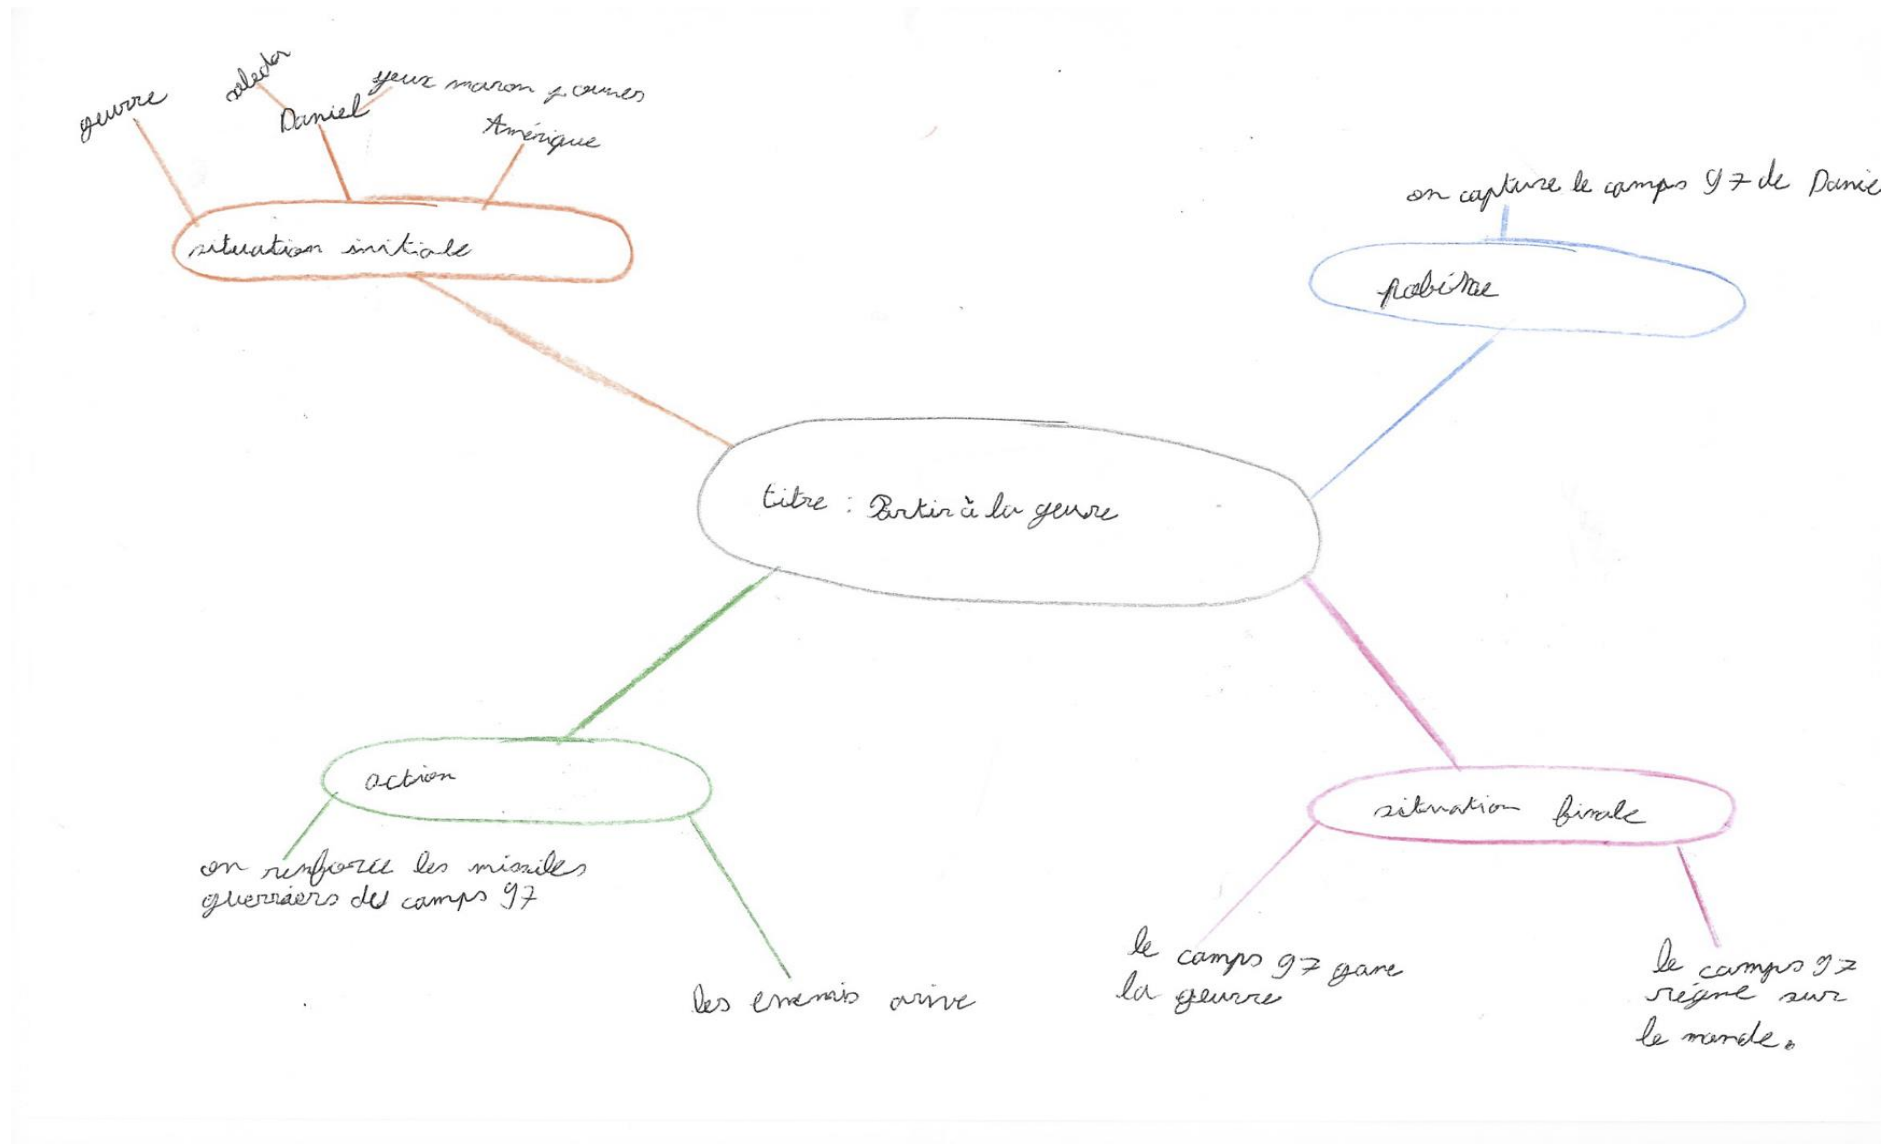 geurre
Daniel
yeux maron
Amérique
situation initiale
on capture le camps 97 de Danie
titre : Partir à la geurre
action
on renforce les missiles
guerriers des camps 97
les enemis arive
situation finale
le camps 97 gane
la geurre
le camps 97
régne sur
le monde.